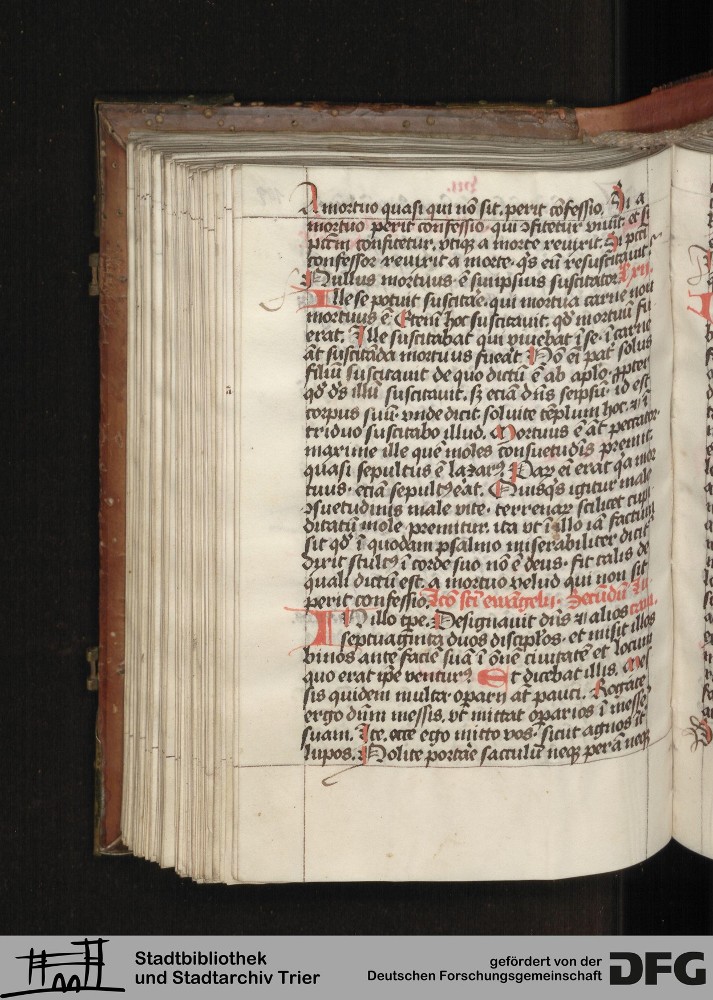 A mortuo quasi qui nō sit. perit cōfessio. Si a
mortuo perit confessio. qui ꝯfitetur viuit et si
pctm̄ confitetur. vtiqꝫ a morte reuixit. Si pcti
confessor reuixit a morte. qͥs eū resuscitauit.
Nullus mortuus ē suiipsius suscitator
Ille se potuit suscitare. qui mortua carne non
mortuus ē. Etenī hoc suscitauit. qḋ mortuū fu
erat. Ille suscitabat qui viuebat ī se. ī carne
āt suscitāda mortuus fuerat. Nō eī pat̄ solus
filiū suscitauit de quo dictū ē ab aplo. ꝓpter
qḋ ds̄ illū suscitauit. sꝫ eciā dn̄s seipsū. id est
corpus suū. vnde dicit soluite tēplum hoc. et ī
triduo suscitabo illud. Mortuus ē āt peccator.
maxime ille quē moles consuetudīs premit.
quasi sepultus ē lazarꝰ. Par̄ eī erat qͥa mor
tuus. eciā sepultꝰ erat. Quisqͥs igitur male
ꝯsuetudinis male vite. terrenaꝝ scilicet cupi
ditatū mole premitur. ita vt ī illo iā factum
sit qḋ ī quodam psalmo miserabiliter dicit̄
dixit stultꝰ ī corde suo nō ē deus. fit talis de
quali dictū est. a mortuo velud qui non sit
perit confessio. Lcō scī ewāgelij. Secūdū lu
In illo tpe. Designauit dn̄s et alios cam.
septuaginta duos discip̄los. et misit illos
binos ante faciē suā ī ōne ciuitatē et locum
quo erat ipe venturꝰ. Et dicebat illis. Mes
sis quidem multa. oparij āt pauci. Rogate
ergo dn̄m messis. vt mittat oparios ī messē
suam. Ite. ecce ego mitto vos. sicut agnos īt̄
lupos. Nolite portare sacculū neqꝫ perā neqꝫ
Stadtbibliothek
und Stadtarchiv Trier
gefördert von der
Deutschen Forschungsgemeinschaft
DFG